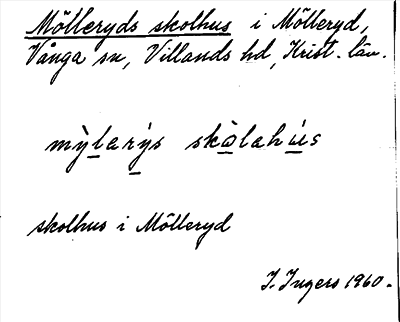 Mölleryds skolhus i Mölleryd,
Vånga sn, Villands hd, Krist. län.
mỳlarýs skòlahús
skolhus i Mölleryd
I. Ingers 1960.